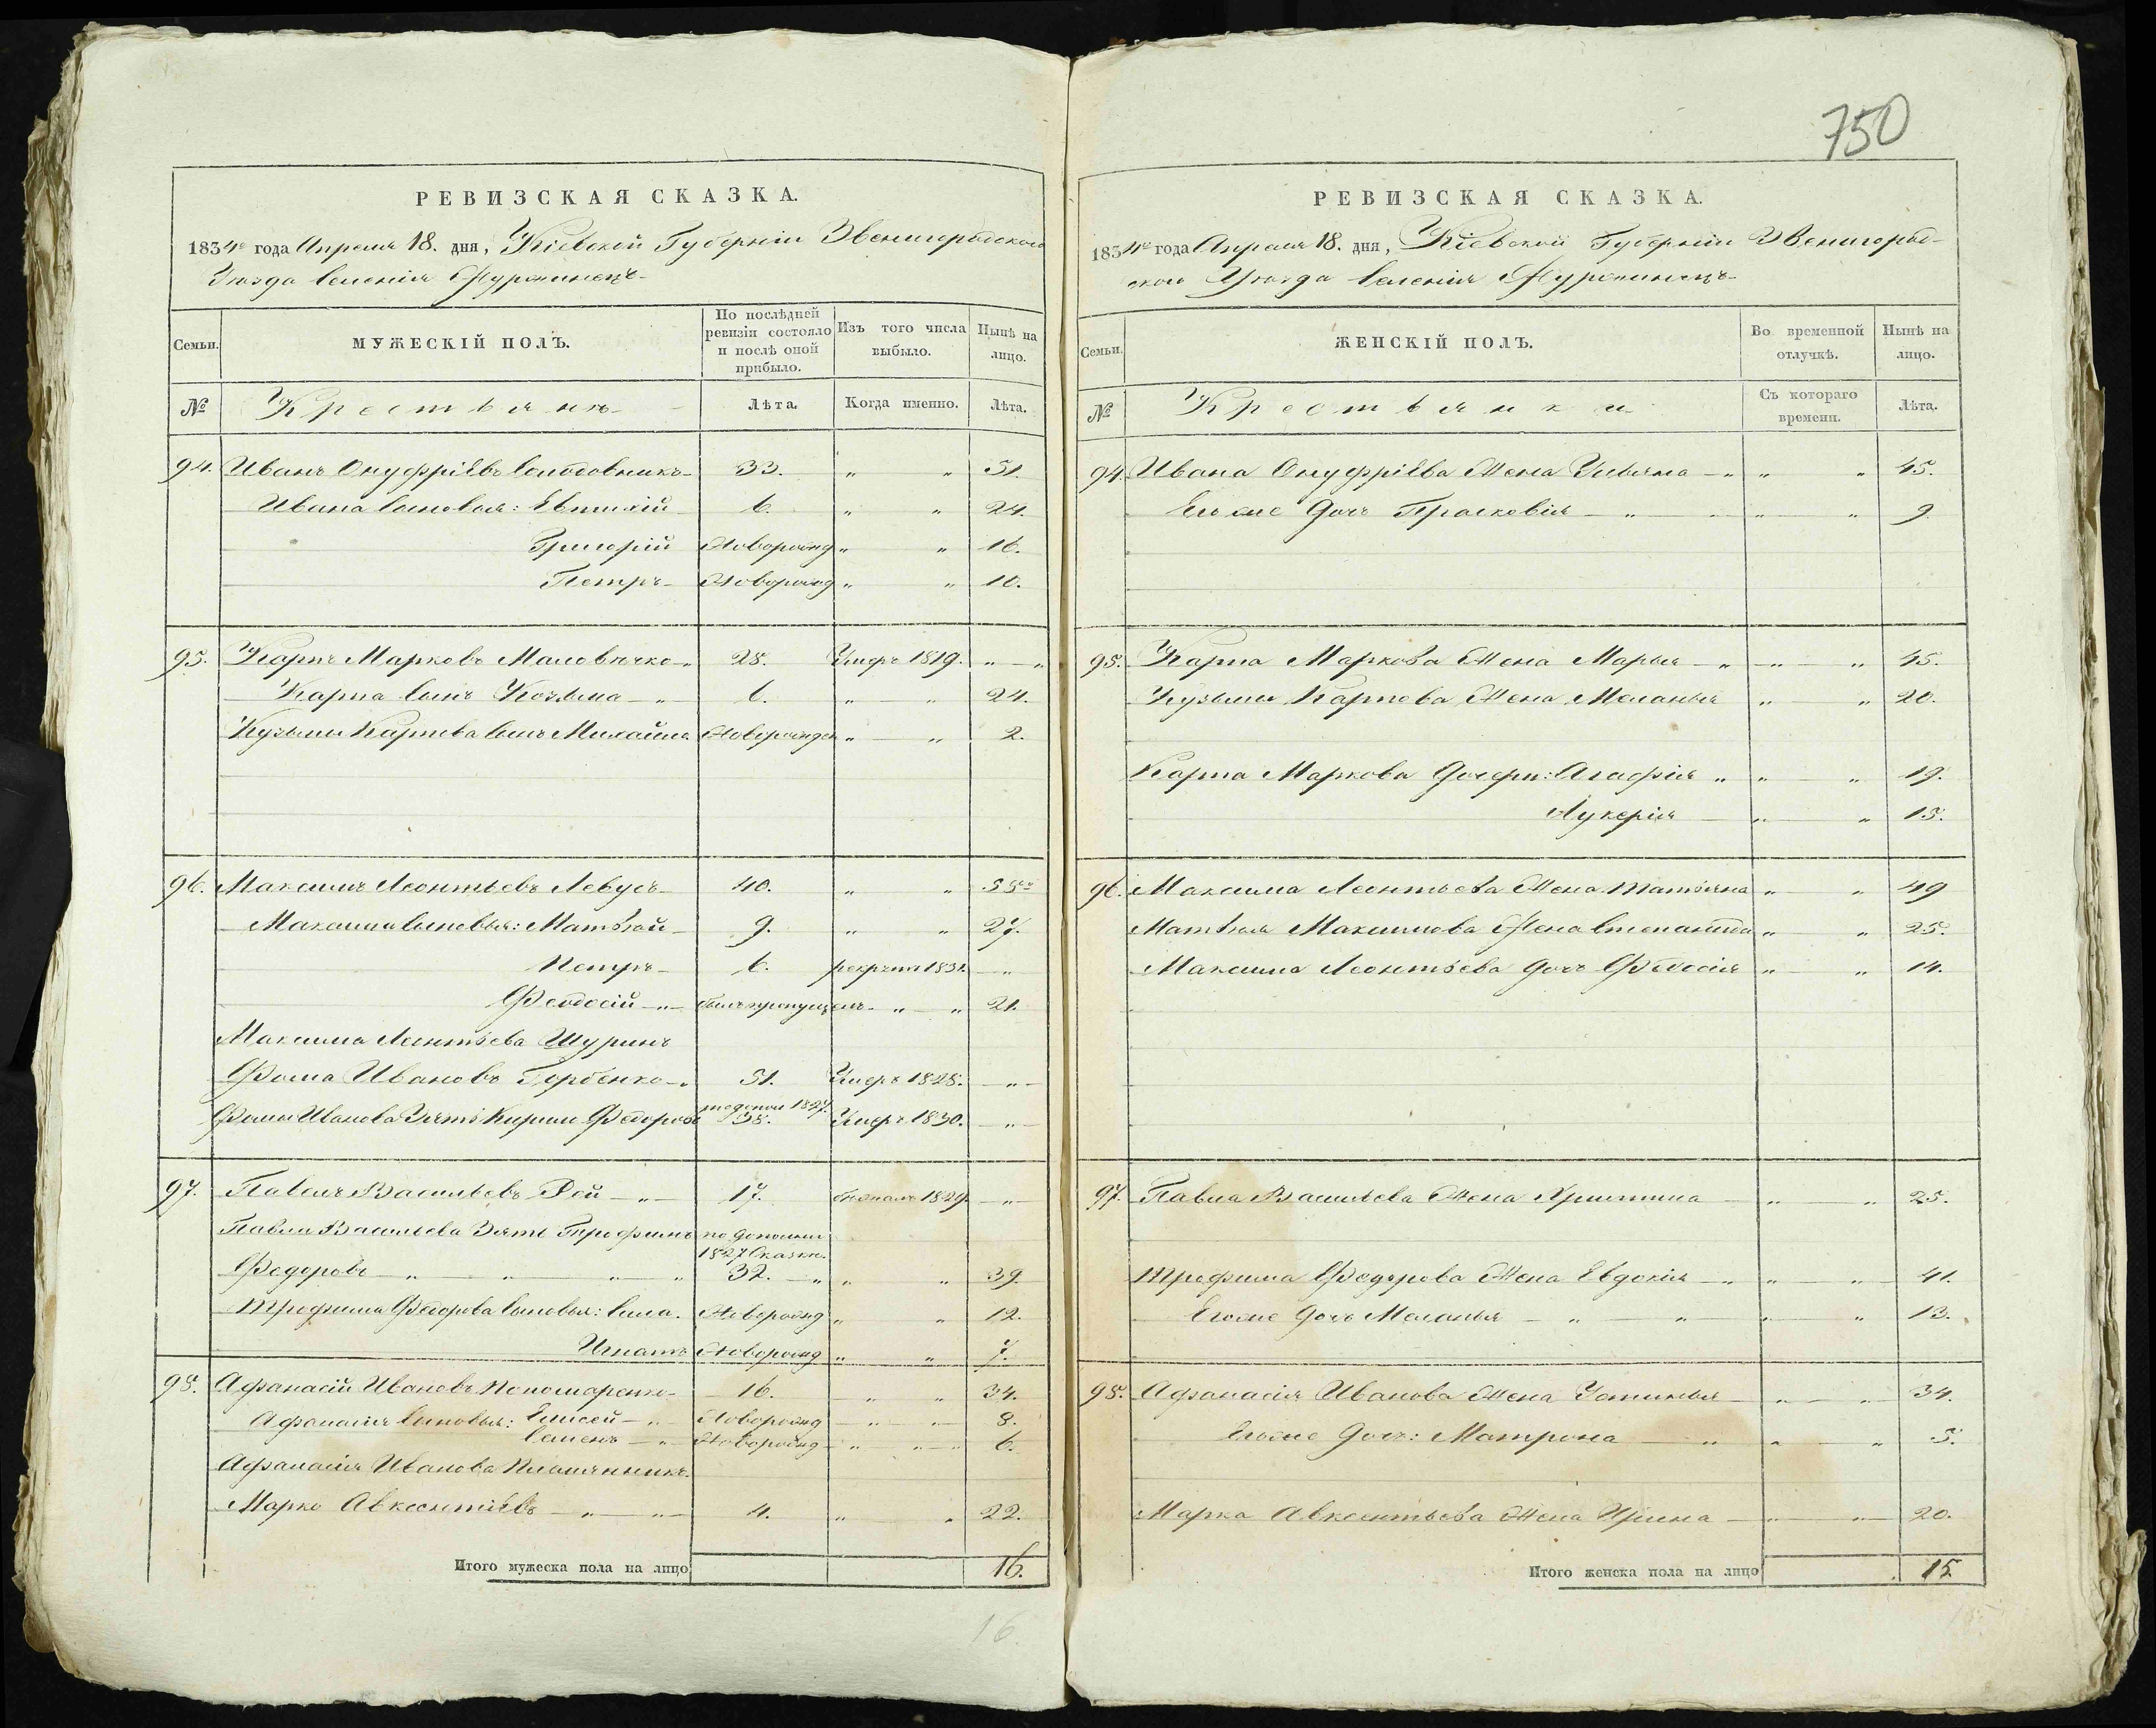 750
РЕВИЗСКАЯ СКАЗКА.
1834го года Апреля 18. дня, Кіевской Губерніи Звенигородского
Уѣзда Селенія Журжинецъ
Семьи. МУЖЕСКІЙ ПОЛЪ. По послѣдней ревизіи состояло и послѣ оной прибыло. Изъ того числа выбыло. Нынѣ на лицо.
№ Крестьянъ Лѣта. Когда именно. Лѣта.
94. Иванъ Онуфріевъ 33. " " 51.
Ивана Сыновья: Евтихій 6. " " 24.
Григорій Новорожд " " 16.
Петръ Новорожд " " 10.
95. Карпъ Марковъ Маловичко 28. Умеръ 1819. " "
Карпа Сынъ Козьма " 6. " " 24.
Кузьмы Карпова Сынъ Михайла Новорожден " " 2.
96. Максимъ Леонтьевъ Левусъ 40. " " 58
Максима Сыновья: Матвѣй 9. " " 27.
Петръ 6. рекрутъ 1831. "
Феодосій " былъ пропущенъ " " 21.
Максима Леонтьева Шуринъ
Фома Ивановъ Горбенко " 51. Умеръ 1828. "
Фомы Иванова Зять Кирило Федоровъ 1827. 38. Умеръ 1830. "
97. Павелъ Васильевъ Рей " 17. 1829 "
Павла Васильева Зять Трофимъ по дополни
1827 Сказкѣ
Федоровъ " " " " 32. " " " 39
Трофима Федорова Сыновья: Сила. Новорожд " " 12.
Игнатъ Новорожд " " 7.
98. Афанасій Ивановъ Пономаренко 16. " " 34.
Афанасія Сыновья: Елисей " Новорожд " " 8.
Семенъ " Новорожд " " " 6.
Афанасія Иванова Племянникъ
Марко Авксентіевъ " " 4. " " 22.
Итого мужеска пола на лицо 16.
16
РЕВИЗСКАЯ СКАЗКА.
1834го года Апреля 18. дня, Кіевской Губерніи Звенигород-
ского Уѣзда Селенія Журжинецъ
Семьи. ЖЕНСКІЙ ПОЛЪ. Во временной отлучкѣ. Нынѣ на лицо.
№ Крестьянки Съ котораго времени. Лѣта.
94. Ивана Онуфріева Жена Ульяна " " " 45.
Его же Дочь Прасковія " " " 9
95. Карпа Маркова Жена Марья " " " 45.
Кузьмы Карпова Жена Меланья " " 20.
Карпа Маркова Дочери: Агафія " " " 19.
Лукерія " " 15.
96. Максима Леонтьева Жена Татьяна " " 49
Матвѣя Максимова Жена Степанида " " 25.
Максима Леонтьева Дочь Феодосія " " 14.
97. Павла Васильева Жена Христина " " 25.
Трофима Федорова Жена Евдокія " " " 41.
Его же Дочь Меланья " " " " 13.
98. Афанасія Иванова Жена Устинья " " 34.
Его же Дочь: Матрона " " " 5.
Марка Авксентьева Жена Ирина " " 20.
Итого женска пола на лицо 15